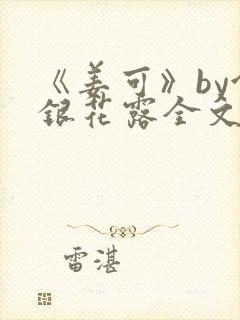 《姜可》by
銀花露全文
雷湛